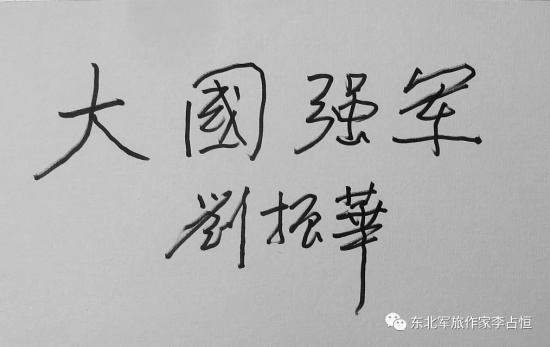 大國强军
劉振華
东北军旅作家李占恒